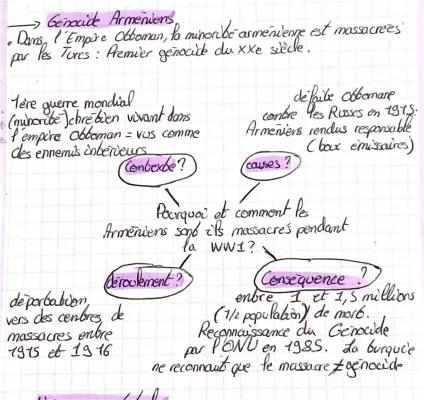 → Génocide Arméniens
. Dans l'Empire Ottoman, la minorité arménienne est massacrées
par les Turcs : Premier génocide du XXe siècle.
1ère guerre mondial
(minorité) chrétien vivant dans
l'empire Ottoman = vus comme
des ennemis intérieurs
défaite Ottomane
contre les Russes en 1915.
Arméniens rendus responsable
(boux émissaires)
Contexte ?
causes ?
Pourquoi et comment les
Arméniens sont ils massacrés pendant
la WW1 ?
déroulement ?
Conséquence ?
déportation
vers des centres de
massacres entre
1915 et 1916
entre 1 et 1,5 millions
(1/2 population) de mort.
Reconnaissance du Génocide
par l'ONU en 1985. La turquie
ne reconnait que le massacre ≠ génocide